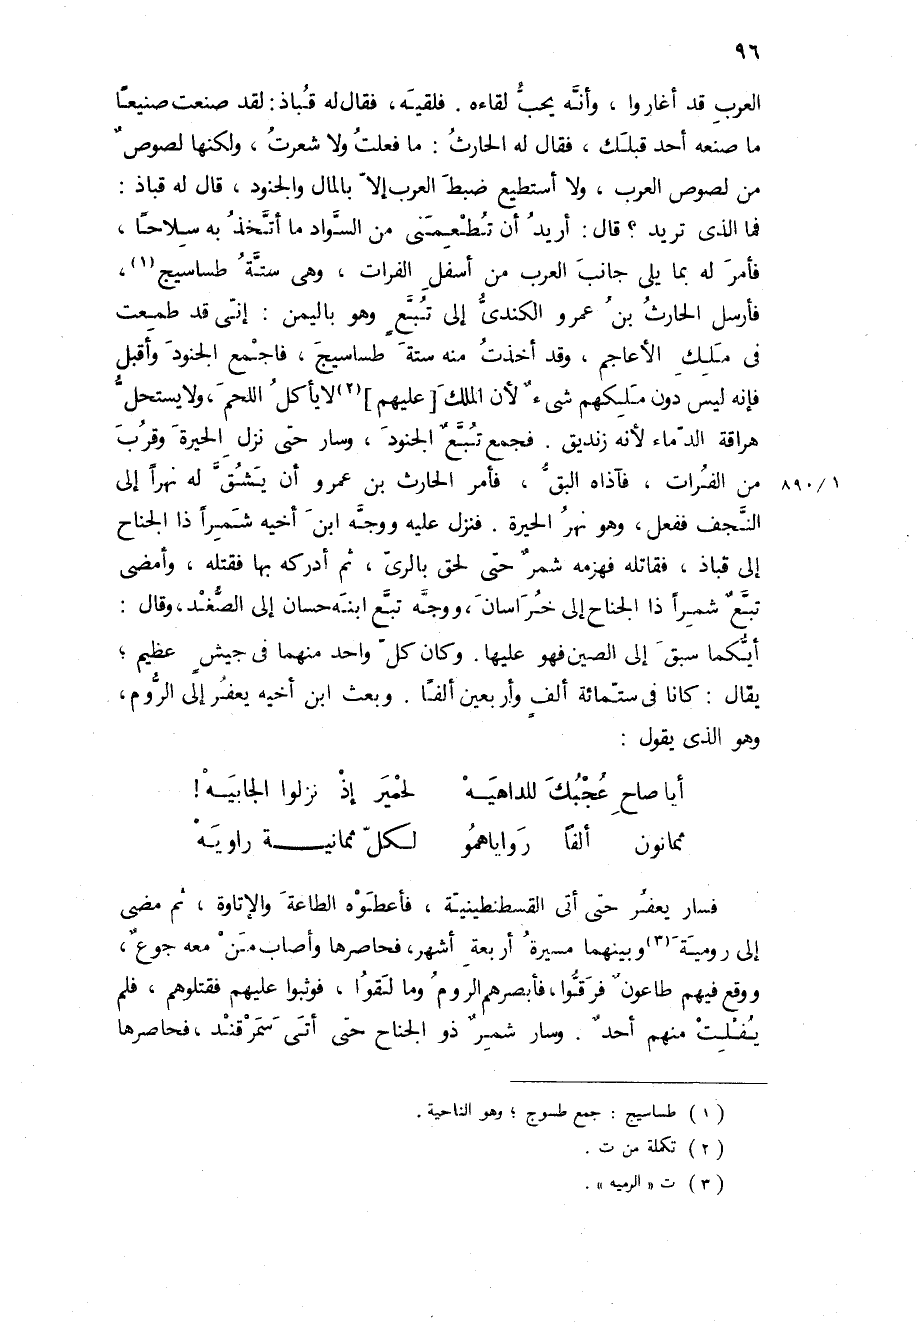 ٩٦
العربِ قد أغاروا ، وأنَّه يحبُّ لقاءه . فلقيَه، فقال له قُباذ: لقد صنعت صنيعًا
ما صنعه أحد قبلَك ، فقال له الحارثُ : ما فعلتُ ولا شعرتُ ، ولكنها لصوصٌ
من لصوص العرب ، ولا أستطيع ضبطَ العرب إلاّ بالمال والجنود ، قال له قباذ :
فما الذى تريد ؟ قال: أريدُ أن تُطْعِمَنى من السَّواد ما أتَّخذُ به سلاحًا ،
فأمرَ له بما يلى جانبَ العرب من أسفلِ الفرات ، وهى ستَّةُ طساسيج(١)،
فأرسل الحارثُ بنُ عمرو الكندىُّ إلى تُبَّعٍ وهو باليمن : إنّى قد طمِعت
فى مَلِكِ الأعاجم ، وقد أخذتُ منه ستةَ طساسيجَ ، فاجْمع الجنودَ وأقبل
فإنه ليس دون مَلِكهم شىءٌ لأن الملكَ [عليهم](٢) لا يأكلُ اللحمَ، ولا يستحلُّ
هراقة الدّماء لأنه زنديق . فجمع تُبَّعٌ الجنودَ ، وسار حتّى نزل الحيرةَ وقرُبَ
من الفُرات ، فآذاه البقُّ ، فأمر الحارث بن عمرو أن يَشُقَّ له نهراً إلى ٨٩٠/١
النَّجف ففعل، وهو نهرُ الحيرة . فنزل عليه ووجَّه ابنَ أخيه شَمِراً ذا الجناح
إلى قباذ ، فقاتله فهزمه شمرٌ حتّى لحق بالرىّ ، ثم أدركه بها فقتله ، وأمضى
تبَّعٌ شمِراً ذا الجناح إلى خُرَاسانَ، ووجَّه تبَّع ابنَه حسان إلى الصُّغْد، وقال :
أيُّكما سبقَ إلى الصين فهو عليها. وكان كلّ واحد منهما فى جيشٍ عظيم ؛
يقال : كانا فى ستّمائة ألفٍ وأربعين ألفًا . وبعث ابن أخيه يعفُر إلى الرُّوم،
وهو الذى يقول :
أيا صاحِ عُجْبُكَ للداهيَهْ لحْميَر إذْ نزلوا الجابيَهْ!
ثمانون ألفًا رَواياهمُو لكلّ ثمانيـة راويَهْ
فسار يعفُر حتّى أتى القسطنطينيّة ، فأعطَوْه الطاعةَ والإتاوة ، ثم مضى
إلى روميَةَ(٣) وبينهما مسيرةُ أربعةِ أشهر، فحاصرها وأصاب مَنْ معه جوعٌ،
ووقع فيهم طاعونٌ فرَقُّوا، فأبصرهم الرومُ وما لَقُوا ، فوثبوا عليهم فقتلوهم ، فلم
يُفْلِتْ منهم أحدٌ . وسار شمِرٌ ذو الجناح حتّى أتَى سَمَرْقنْد ، فحاصرها
(١) طساسيج : جمع طسوج ؛ وهو الناحية .
(٢) تكملة من ت .
(٣) ت « الرميه » .